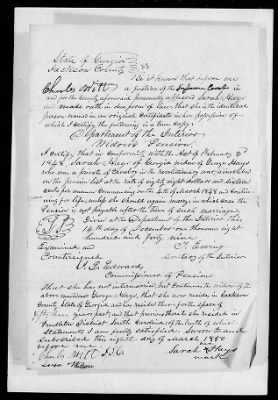 State of Georgia
Jackson County } SS
Be it known that before me
Charles Witt a Justice of the Inferior Court in
and for the County aforesaid personally appeared Sarah Hays
and made oath in due form of law, that she is the identical
person named in an original Certificate in her possession of
which I certify the following is a true Copy:
Department of the Interior
Widows Pension.
I certify, that in conformity with the Act of February 2
1848 Sarah Hays of Georgia widow of George Hays
who was a private of Cavalry in the revolutionary war is inscribed
on the pension list at the rate of eighty eight dollars and
cents per annum Commencing on the 4th of March 1848 and contin-
ing for life, unless she should again marry, in which case the
Pension is not payable after the time of such marriage.
Given at the Department of the Interior this
14th day of December one thousand eight
hundred and forty nine.
Examined and T. Ewing
Countersigned Secretary of the Interior
J. L. Edwards,
Commissioner of Pensions
That she has not intermarried, but continues the widow of the
above mentioned George Hays, that she now resides in Jackson
County, State of Georgia and has resided there for the space of
fifty three years past, and that previous thereto she resided in
Pendleton District South Carolina, of the truth of which
statements I am fully satisfied. Sworn to and
subscribed this eight day of March 1850
before me her
Charles Witt J.I.C. Sarah X Hays
mark